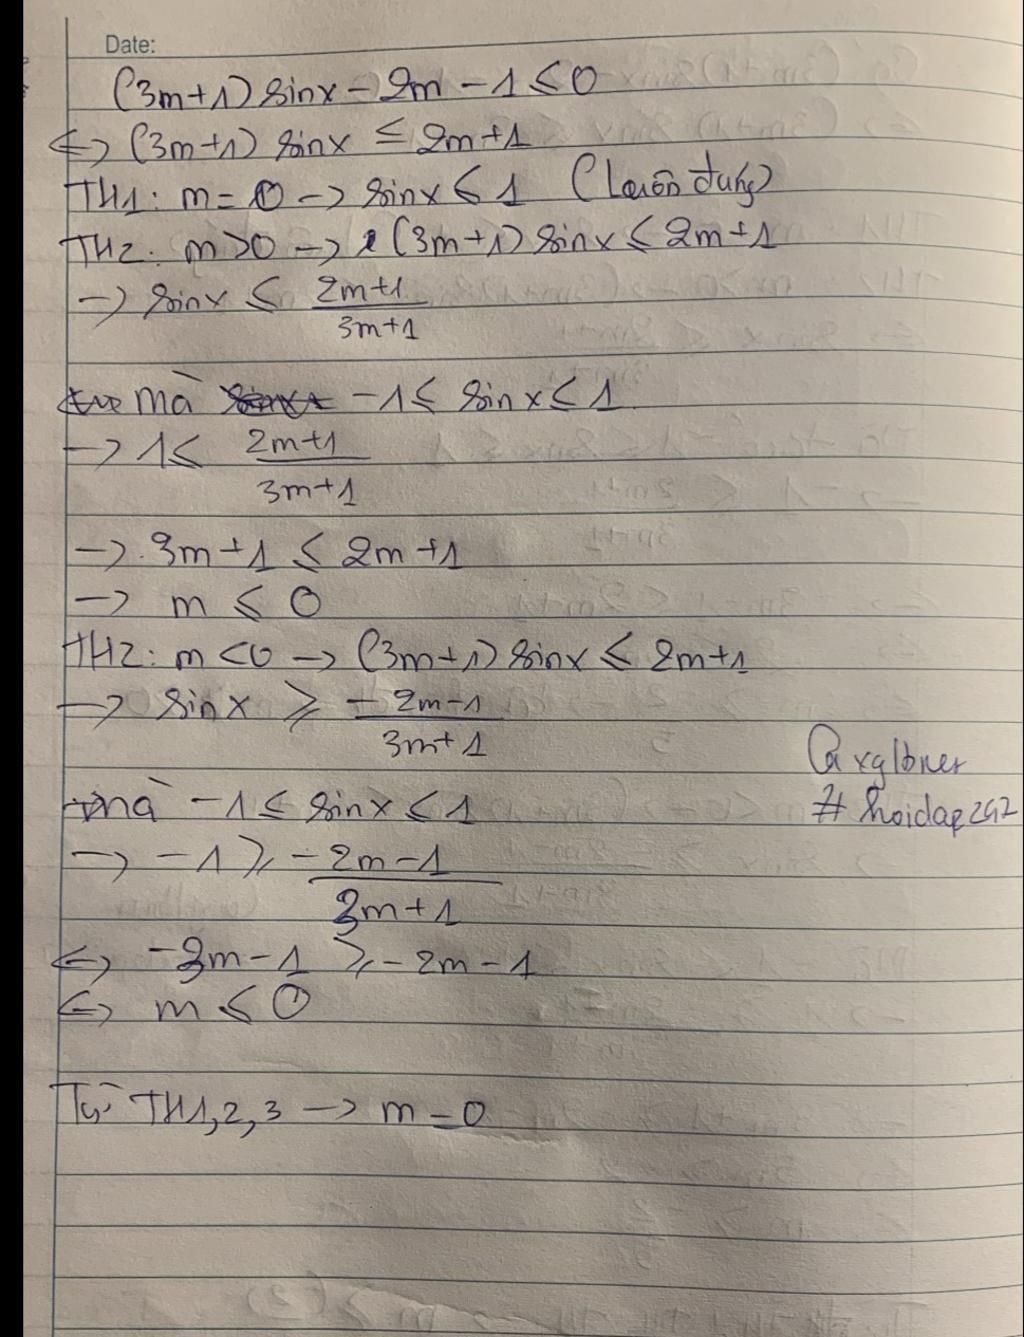 Date:
(3m+1) sinx - 2m - 1 ≤ 0
<=> (3m+1) sinx ≤ 2m+1
TH1: m = 0 -> sinx ≤ 1 (luôn đúng)
TH2: m>0 -> (3m+1) sinx ≤ 2m+1
-> sinx ≤ 2m+1
3m+1
mà -1 ≤ sinx ≤ 1
-> 1 ≤ 2m+1
3m+1
-> 3m+1 ≤ 2m+1
-> m ≤ 0
TH2: m<0 -> (3m+1) sinx ≤ 2m+1
-> sinx ≥ -2m-1
3m+1
mà -1 ≤ sinx ≤ 1
-> -1 ≥ -2m-1
3m+1
<=> -3m-1 ≥ -2m-1
<=> m ≤ 0
# hoidap247
Từ TH1,2,3 -> m = 0